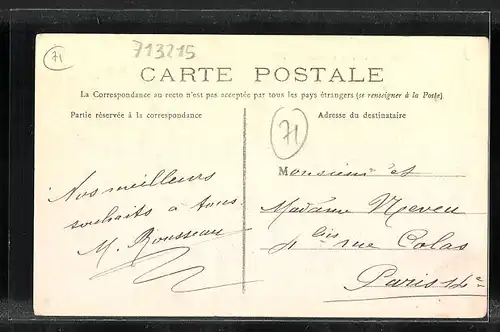 71
713215
CARTE POSTALE
La Correspondance au recto n'est pas acceptée par tous les pays étrangers (se renseigner à la Poste).
Partie réservée à la correspondance
Adresse du destinataire
71
Nos meilleurs
souhaits a tous.
M. Rousseau
Monsieur et
Madame Neveu
4 bis rue Colas
Paris 14e